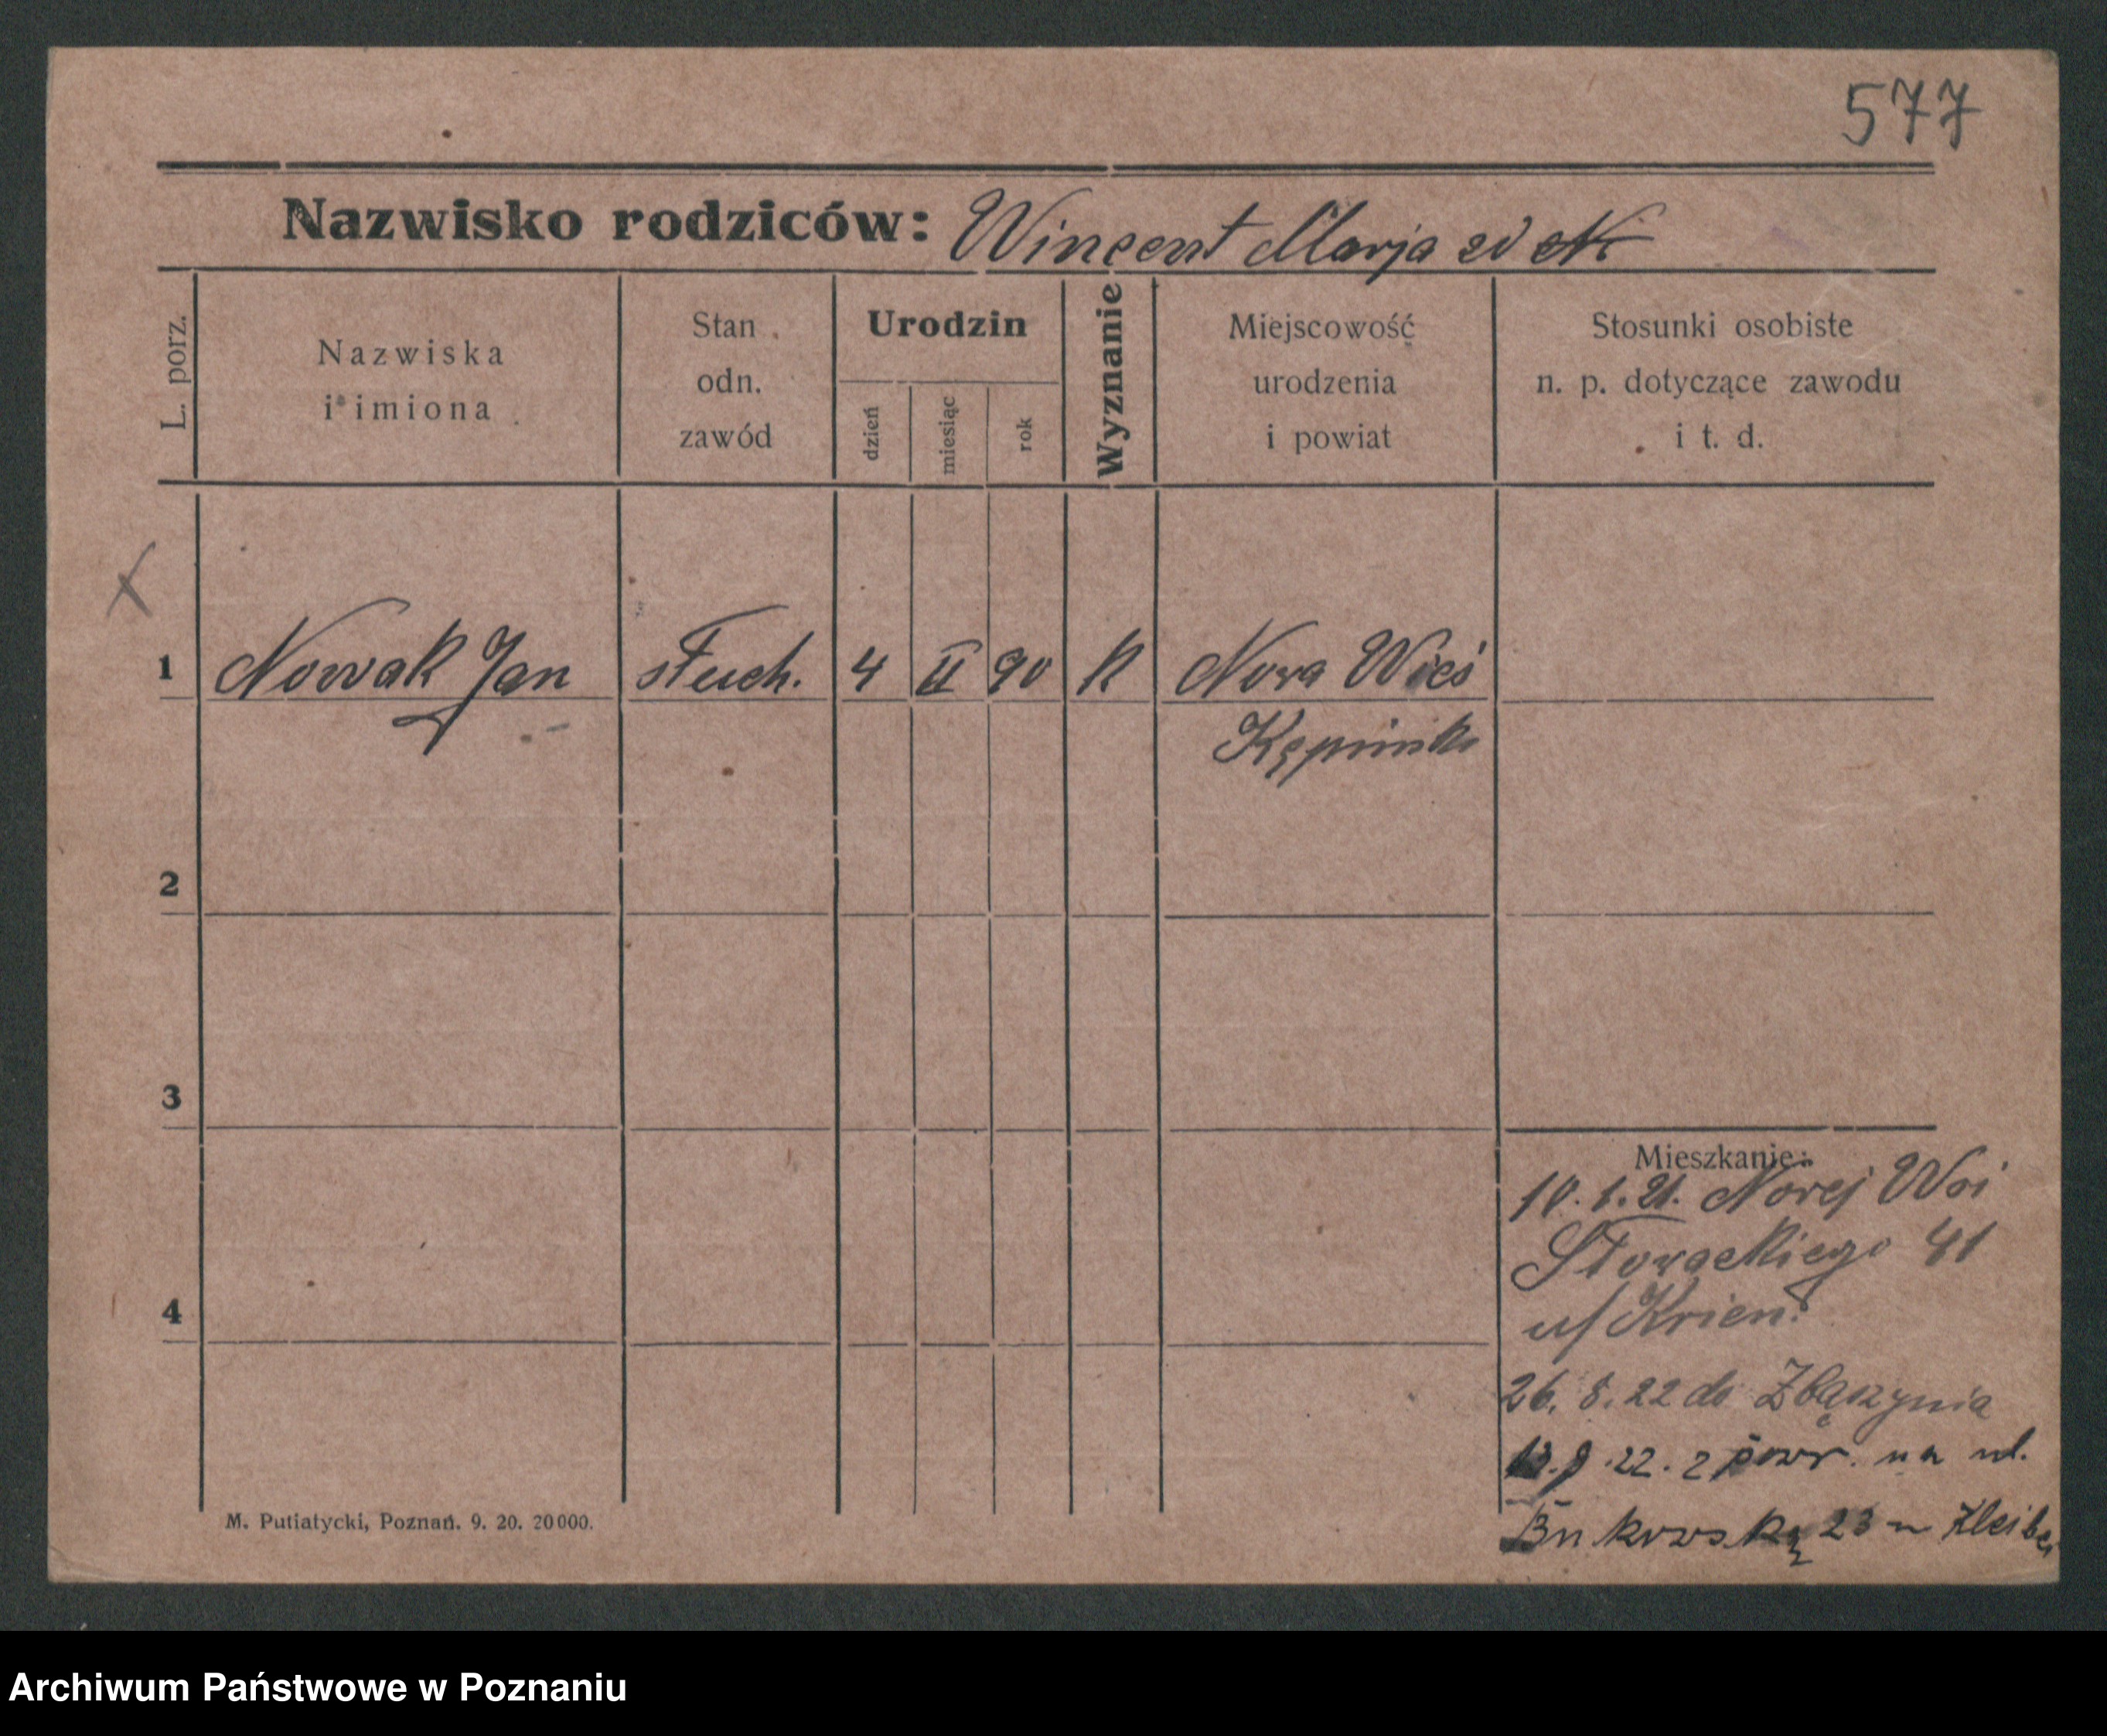 577
Nazwisko rodziców: Wincent Marja
L. porz.
Nazwiska
i imiona
Stan
odn.
zawód
Urodzin
dzień
miesiąc
rok
Wyznanie
Miejscowość
urodzenia
i powiat
Stosunki osobiste
n. p. dotyczące zawodu
i t. d.
X
1 Nowak Jan słuch. 4 II 90 K Nowa Wieś
Kępinsk
2
3
4
Mieszkanie:
Nowej Wsi
Słowackiego 41
u/
26. 8. 22 do Zbąszynia
22. z powr. na ul.
Bukowską 23
M. Putiatycki, Poznań. 9. 20. 20000.
Archiwum Państwowe w Poznaniu